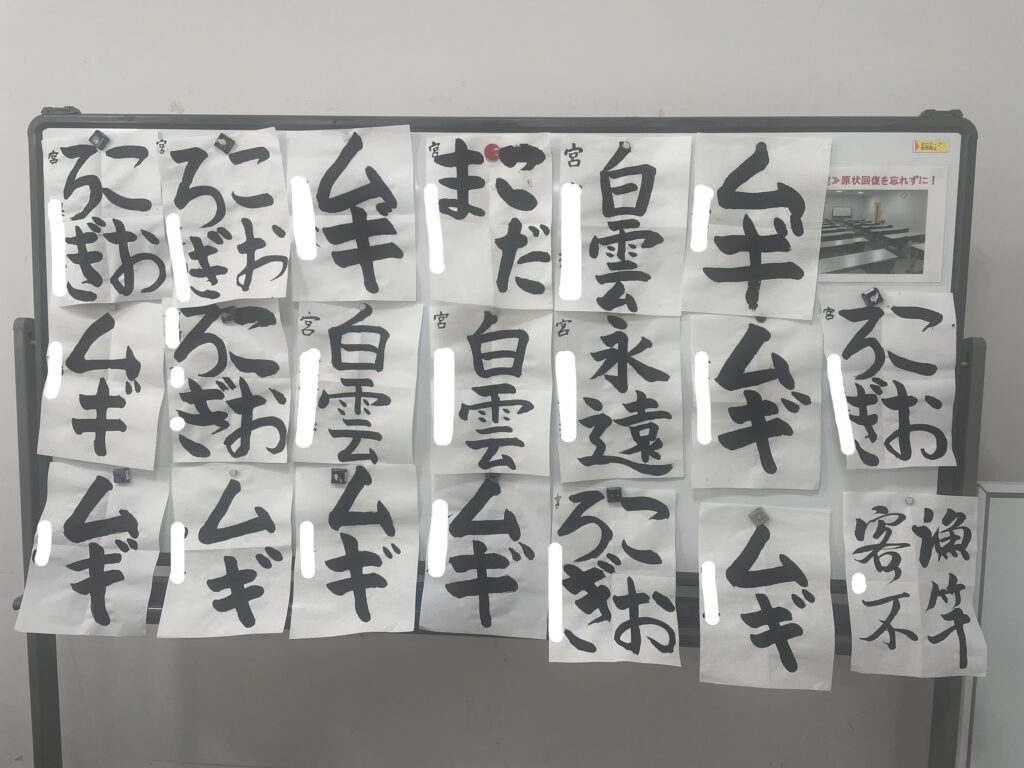 こお
ろぎ
宮
こお
ろぎ
宮
ムギ
こだ
ま
宮
白雲
宮
ムギ
≫原状回復を忘れずに!
ムギ
こお
ろぎ
白雲
宮
白雲
宮
永遠
宮
ムギ
こお
ろぎ
宮
ムギ
ムギ
ムギ
ムギ
こお
ろぎ
宮
ムギ
漁竿
客不